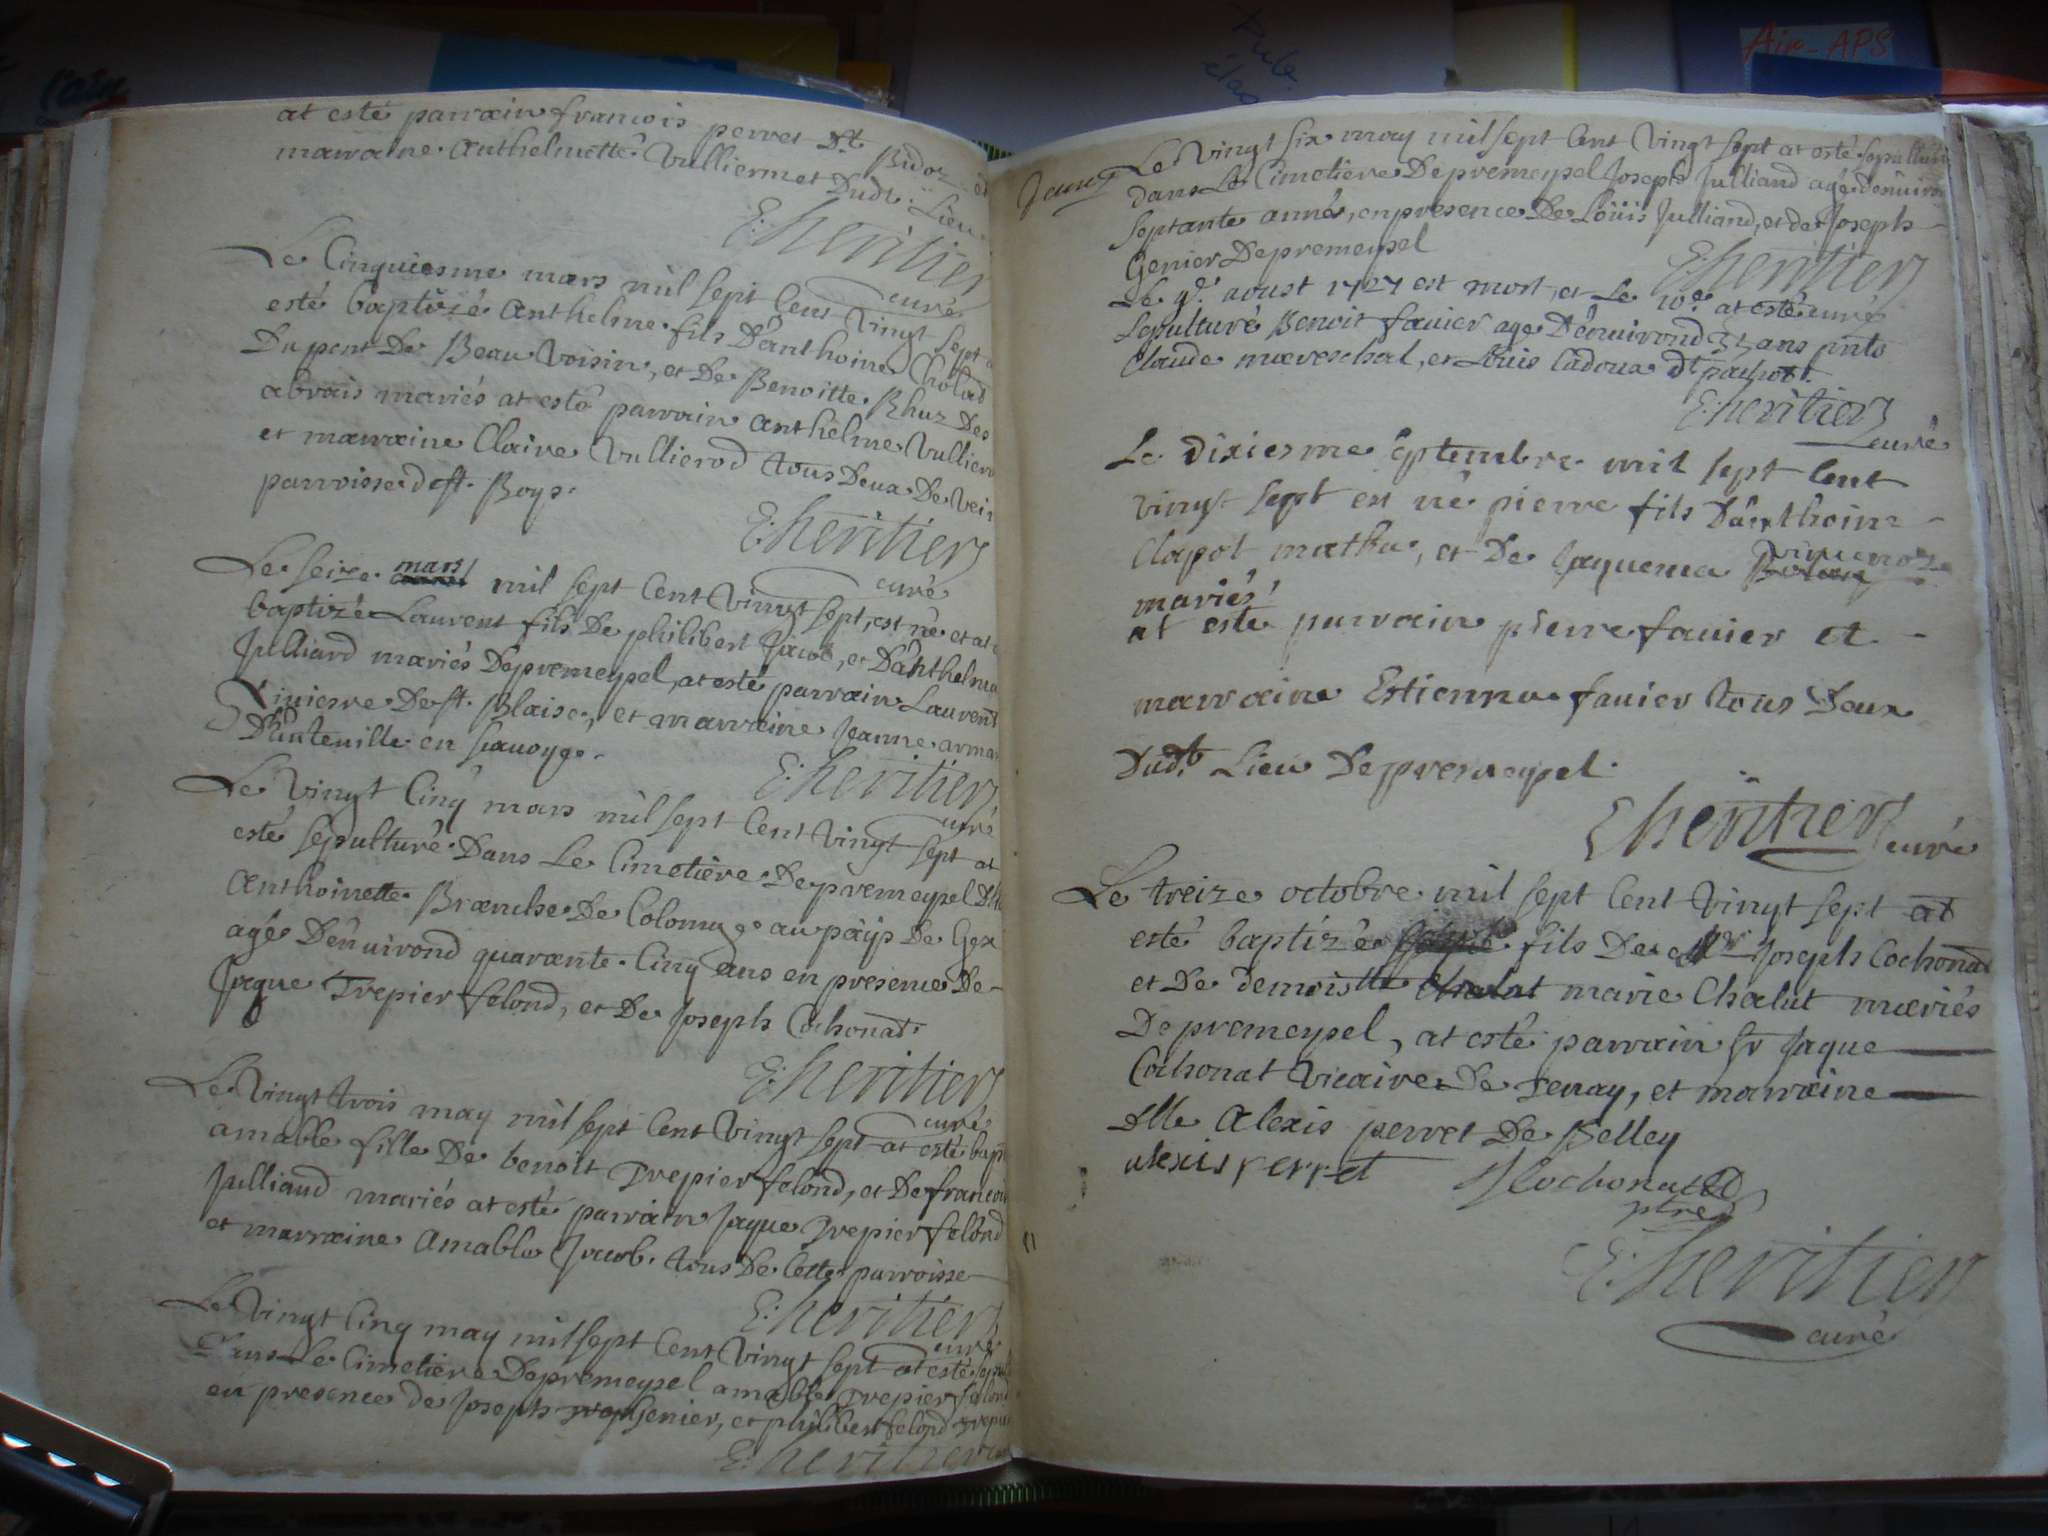 l'ain
Pub.
Air-APS
at esté parrain francois perret Dt. Bidoz et
marraine Anthelmette Vulliermet Dudt. Lieu.
E: heritier
curé
Le Cinquiesme mars mil sept Cent Vingt sept a
esté baptizé Anthelme fils D'anthoine Cholad
Dupont De Beau Voisin, et De Benoitte Rhuz Des
abrais mariés at esté parrain Anthelme Vullierod
et marraine Claire Vullierod tous Deux De Vei
parroisse de st. Boys.
E: heritier
curé
Le seize mars mil sept Cent Vingt sept, est né et at
baptizé Laurent fils De philibert Jacob, et D'anthelma
Julliard mariés Depremeysel, at esté parrain Laurent
De st. Blaise, et marraine Jeanne arma
D'auteville en sauoye.
E: heritier
curé
Le Vingt Cinq mars mil sept Cent Vingt sept at
esté sépulturé Dans Le Cimetière Depremeysel Dlle
Anthoinette Branche De Colonge au päÿs De Gex
agé D'enuirond quarante Cinq ans en presence De
Jaque Trepier felond, et De Joseph Cochonat.
E: heritier
curé
Le Vingt trois may mil sept Cent Vingt sept at esté bapt
amable fille De benoit Trepier felond, et De francois
Julliand mariés at esté parrain Jaque Trepier felond
et marraine Amable Jacob. tous De Cette parroisse
E: heritier
curé
Le Vingt Cinq may mil sept Cent Vingt sept at esté sepul
Dans Le Cimetière Depremeysel amable Trepier felond
en presence de Joseph Genier, et philibert felond trepier
E: heritier
Le Vingt six may mil sept Cent Vingt sept at esté sepulturé
dans Le Cimetière Depremeysel Joseph Julliand agé d'enuiron
septante annés, en presence De Loüis Julliand, et de Joseph
Genier Depremeysel
E: heritier
curé
Le 9e. aoust 1727 est mort, et Le 10e. at esté
sepulturé Benoit fauier age D'enuirond ans pnts
Claude mareschal, et Loüis Cadoux dt pachot.
E: heritier
curé
Le dixiesme septembre mil sept Cent
vingt sept est né pierre fils D'anthoine
Clapot matha, et De Jaquema
mariés
at esté parrain pierre fauier et
marraine Estienna fauier tous Deux
Dudt. Lieu Depremeysel.
E heritier
curé
Le treize octobre mil sept Cent Vingt sept at
esté baptizé fils De Mr Joseph Cochonat
et De demoislle Chalut marie Chalut mariés
Depremeysel, at esté parrain Sr Jaque
Cochonat Vicaire De Tenay, et marraine
Dlle Alexis perret De Belley
alexis perret J Cochonat
ptre
E: heritier
curé